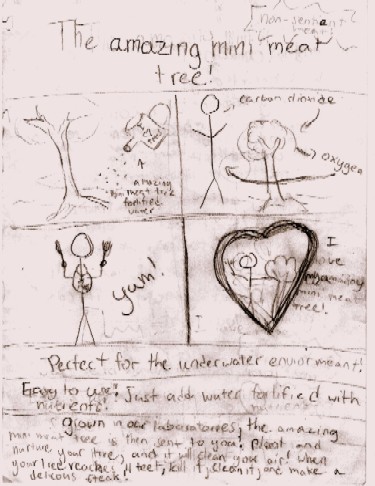 non-sentient
meat!
The amazing mini meat
tree!
carbon dioxide
oxygen
amazing
mini meat tree
fortified
water
Yum!
I
love
my amazing
mini meat
tree!
Perfect for the underwater enviorment!
Easy to use! Just add water fortified with
nutrients!
grown in our laboratories, the amazing
mini meat tree is then sent to you! Plant and
nurture your tree, and it will clean your air! When
your tree reaches 11 feet, kill it, clean it, and make a
delicous steak!